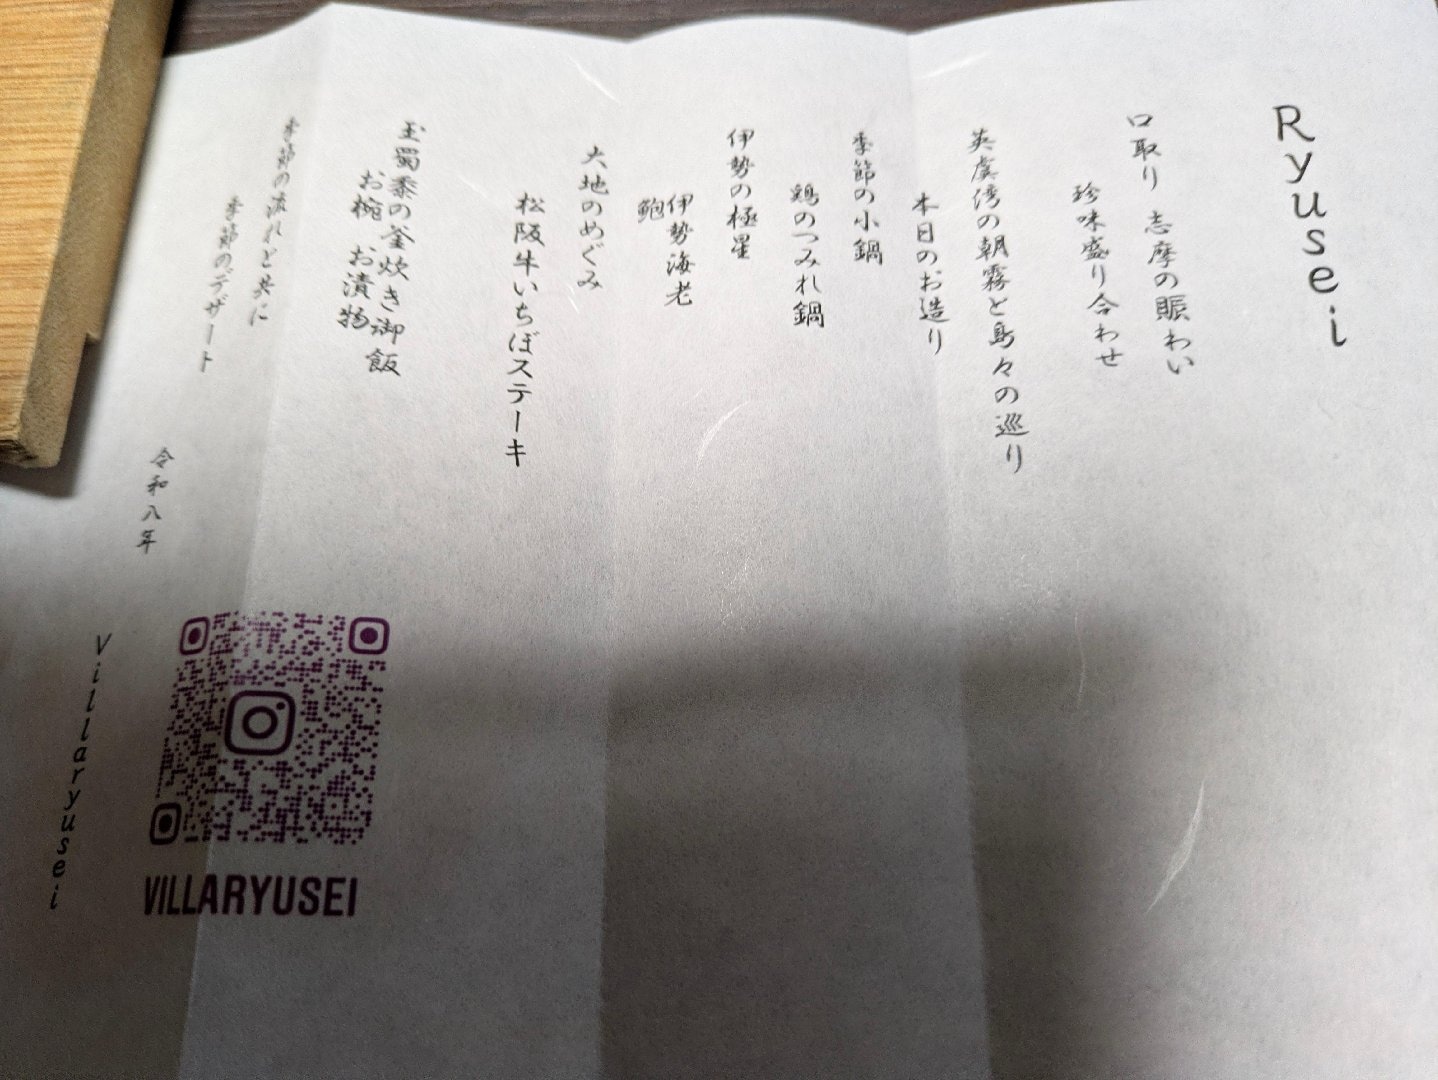 Ryusei
口取り 志摩の賑わい
珍味盛り合わせ
英虞湾の朝霧と島々の巡り
本日のお造り
季節の小鍋
鶏のつみれ鍋
伊勢の極星
伊勢海老
鮑
大地のめぐみ
松阪牛いちぼステーキ
玉蜀黍の釜炊き御飯
お椀 お漬物
季節の流れと共に
季節のデザート
令和八年
Villaryusei
VILLARYUSEI